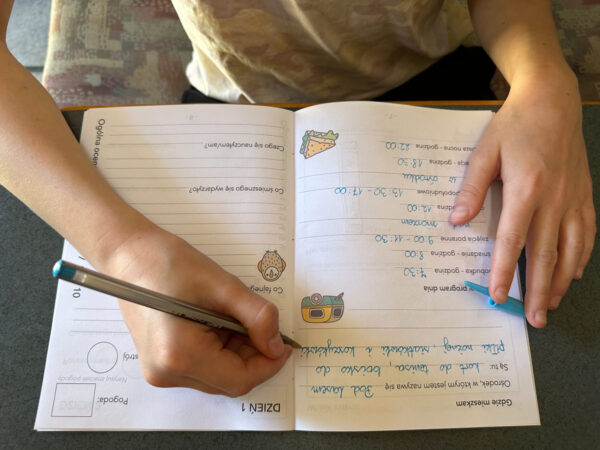 Gdzie mieszkam
Ośrodek, w którym jestem nazywa się Pod lasem
Są tu: kort do tenisa, boisko do
piłki nożnej, siatkówki i koszykówki
program dnia
obudka - godzina 7:30
śniadanie - godzina 8:00
zajęcia poranne 9:00 - 11:30
morzem
godzina 12:00
popołudniowe 13:30 - 17:00
w ośrodku
acja - godzina 18:30
isza nocna - godzina 22:00
DZIEŃ 1
Pogoda:
Narysuj znaczek pogody
strój
10
Co fajneg
Co śmiesznego się wydarzyło?
Czego się nauczyłem/am?
Ogólna ocen